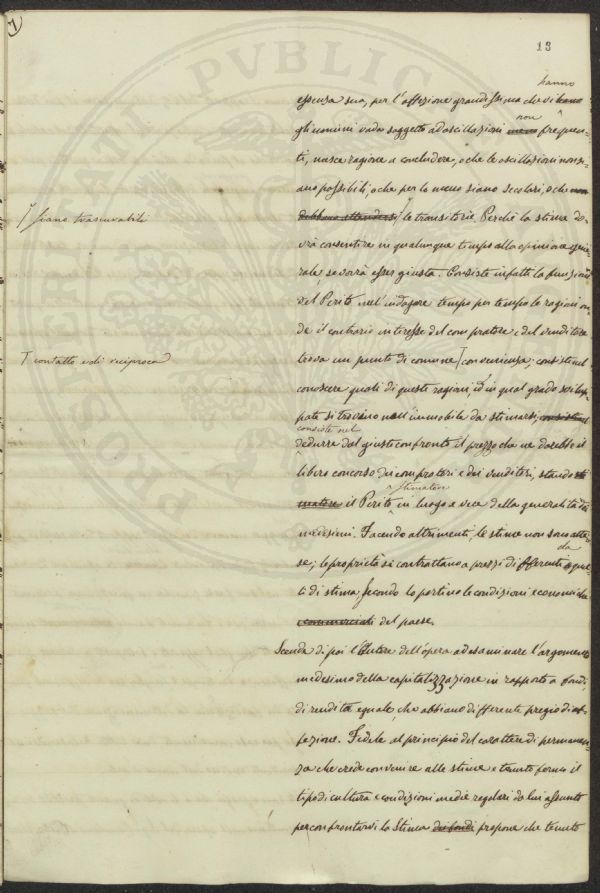 7
13
hanno
essenza sua, per l'affezione grandissima che vi hanno
non
gli uomini vada soggetto ad oscillazioni meno frequen-
ti, nasce ragione a concludere, o che le oscillazioni non si-
ano possibili, o che per lo meno siano secolari, o che non
siano trascurabili
debbano attendersi le transitorie. Perché la stima do-
vrà consentire in qualunque tempo alla opinione gene-
rale, se vorrà esser giusta. Consiste infatti la funzione
del Perito nell'indagare tempo per tempo le ragioni on-
de il contrario interesse del compratore e del venditore
contatto od di reciproca
trova un punto di comune convenienza; consiste nel
conoscere quali di queste ragioni, ed in qual grado svilup-
pate si trovino nell'immobile da stimarsi, consiste nel
consiste nel
dedurre dal giusto confronto il prezzo che ne darebbe il
libero concorso dei compratori e dei venditori, stando
stimatore
il Perito in luogo e vece della generalità dei
medesimi. Facendo altrimenti, le stime non sono atte-
da
se; le proprietà si contrattano a prezzi differenti que-
li di stima, secondo lo portino le condizioni economiche
e commerciali del paese.
Scende di poi l'Autore dell'opera ad esaminare l'argomento
medesimo della capitalizzazione in rapporto a fondi,
di rendita eguale, che abbiano differente pregio di af-
fezione. Fedele al principio del carattere di permanen-
za che crede convenire alle stime e tenuto fermo il
tipo di cultura e condizioni medie regolari da lui assunto
per confrontarvi la Stima dei fondi propone che tenuto